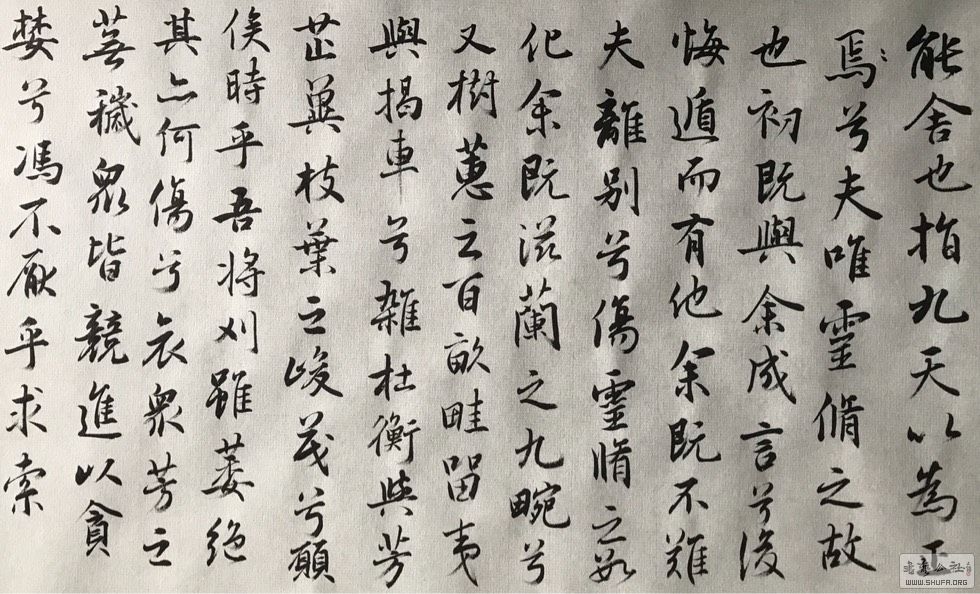 能舍也指九天以為正
焉兮夫唯靈脩之故
也初既與余成言兮後
悔遁而有他余既不難
夫離別兮傷靈脩之數
化余既滋蘭之九畹兮
又樹蕙之百畝畦留夷
與揭車兮雜杜衡與芳
芷冀枝葉之峻茂兮願
俟時乎吾將刈雖萎絕
其亦何傷兮哀眾芳之
蕪穢眾皆競進以貪
婪兮馮不厭乎求索
WWW.SHUFA.ORG